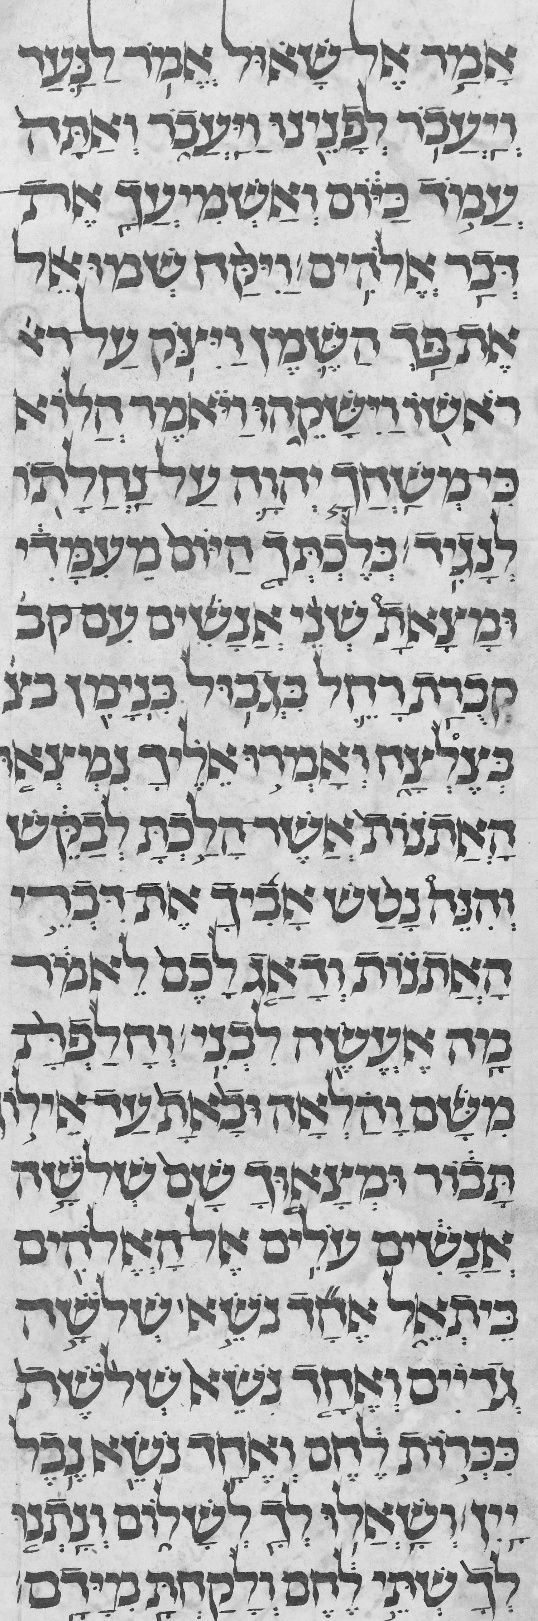 אָמַר אֶל שָׁאוּל אֱמֹר לַנַּעַר
וְיַעֲבֹר לְפָנֵינוּ וַיַּעֲבֹר וְאַתָּה
עֲמֹד כַּיּוֹם וְאַשְׁמִיעֲךָ אֶת
דְּבַר אֱלֹהִים וַיִּקַּח שְׁמוּאֵל
אֶת פַּךְ הַשֶּׁמֶן וַיִּצֹק עַל רא
רֹאשׁוֹ וַיִּשָּׁקֵהוּ וַיֹּאמֶר הֲלוֹא
כִּי מְשָׁחֲךָ יְהוָה עַל נַחֲלָתוֹ
לְנָגִיד בְּלֶכְתְּךָ הַיּוֹם מֵעִמָּדִי
וּמָצָאתָ שְׁנֵי אֲנָשִׁים עִם קב
קְבֻרַת רָחֵל בִּגְבוּל בִּנְיָמִן בצ
בְּצֶלְצַח וְאָמְרוּ אֵלֶיךָ נִמְצְאוּ
הָאֲתֹנוֹת אֲשֶׁר הָלַכְתָּ לְבַקֵּשׁ
וְהִנֵּה נָטַשׁ אָבִיךָ אֶת דִּבְרֵי
הָאֲתֹנוֹת וְדָאַג לָכֶם לֵאמֹר
מָה אֶעֱשֶׂה לִבְנִי וְחָלַפְתָּ
מִשָּׁם וָהָלְאָה וּבָאתָ עַד אֵילוֹן
תָּבוֹר וּמְצָאוּךָ שָּׁם שְׁלֹשָׁה
אֲנָשִׁים עֹלִים אֶל הָאֱלֹהִים
בֵּיתְאֵל אֶחָד נֹשֵׂא שְׁלֹשָׁה
גְדָיִים וְאֶחָד נֹשֵׂא שְׁלֹשֶׁת
כִּכְּרוֹת לֶחֶם וְאֶחָד נֹשֵׂא נֵבֶל
יָיִן וְשָׁאֲלוּ לְךָ לְשָׁלוֹם וְנָתְנוּ
לְךָ שְׁתֵּי לֶחֶם וְלָקַחְתָּ מִיָּדָם